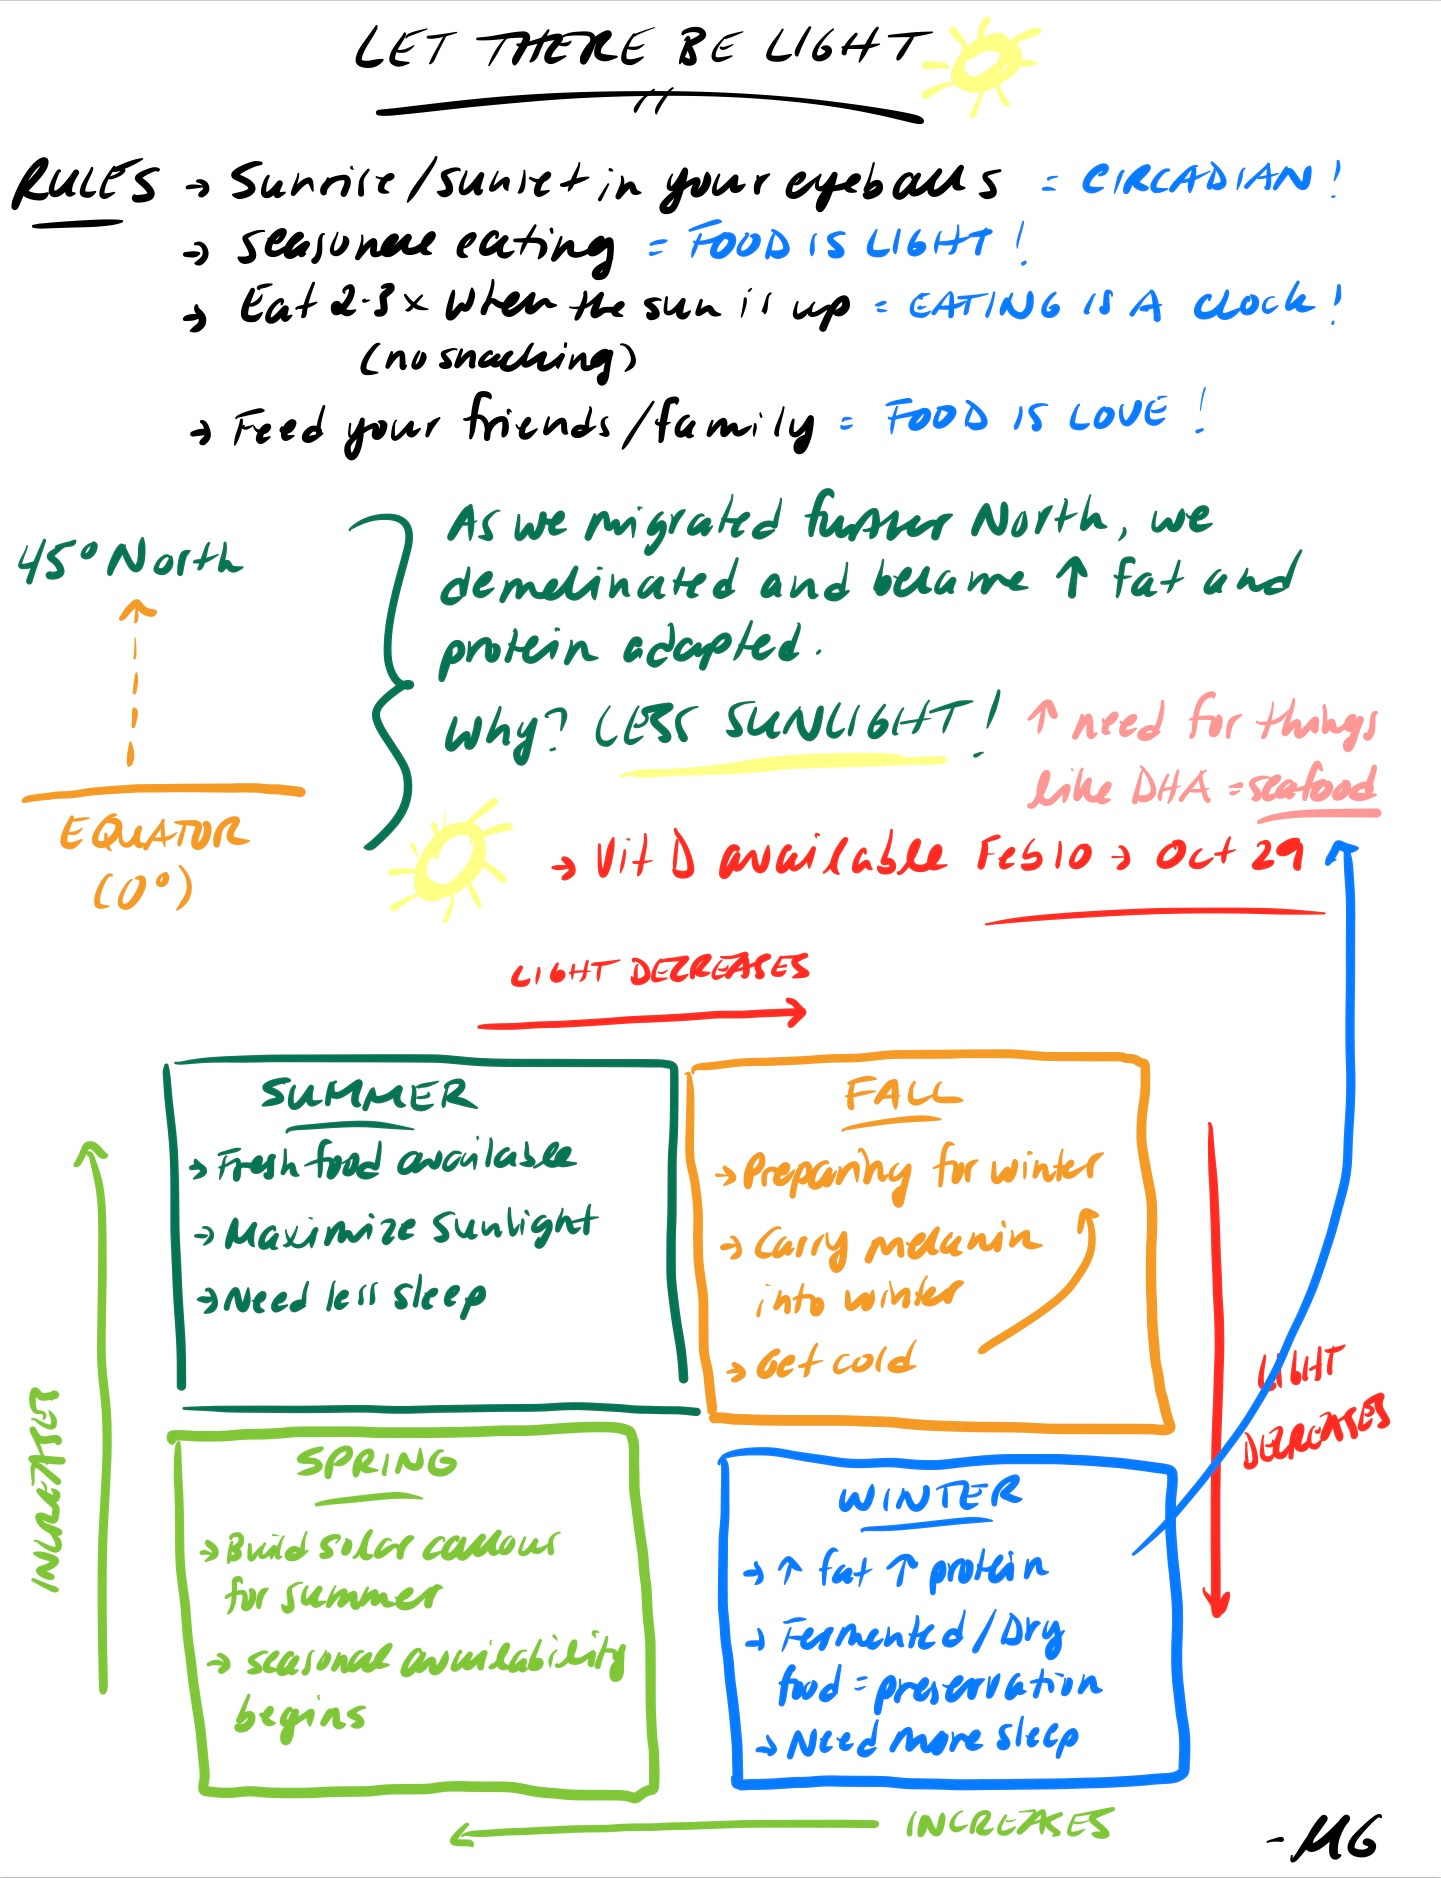 LET THERE BE LIGHT
RULES → Sunrise/sunset in your eyeballs = CIRCADIAN!
→ Seasonal eating = FOOD IS LIGHT!
→ Eat 2-3x when the sun is up = EATING IS A CLOCK!
(no snacking)
→ Feed your friends/family = FOOD IS LOVE!
45° North
EQUATOR
(0°)
As we migrated further North, we
demelinated and became ↑ fat and
protein adapted.
Why? LESS SUNLIGHT!
↑ need for things
like DHA = seafood
→ Vit D available Feb 10 → Oct 29
LIGHT DECREASES
SUMMER
→ Fresh food available
→ Maximize sunlight
→ Need less sleep
FALL
→ Preparing for winter
→ Carry melanin
into winter
→ Get cold
LIGHT
DECREASES
INCREASES
SPRING
→ Build solar callous
for summer
→ seasonal availability
begins
WINTER
→ ↑ fat ↑ protein
→ Fermented/Dry
food = preservation
→ Need more sleep
INCREASES
-MG